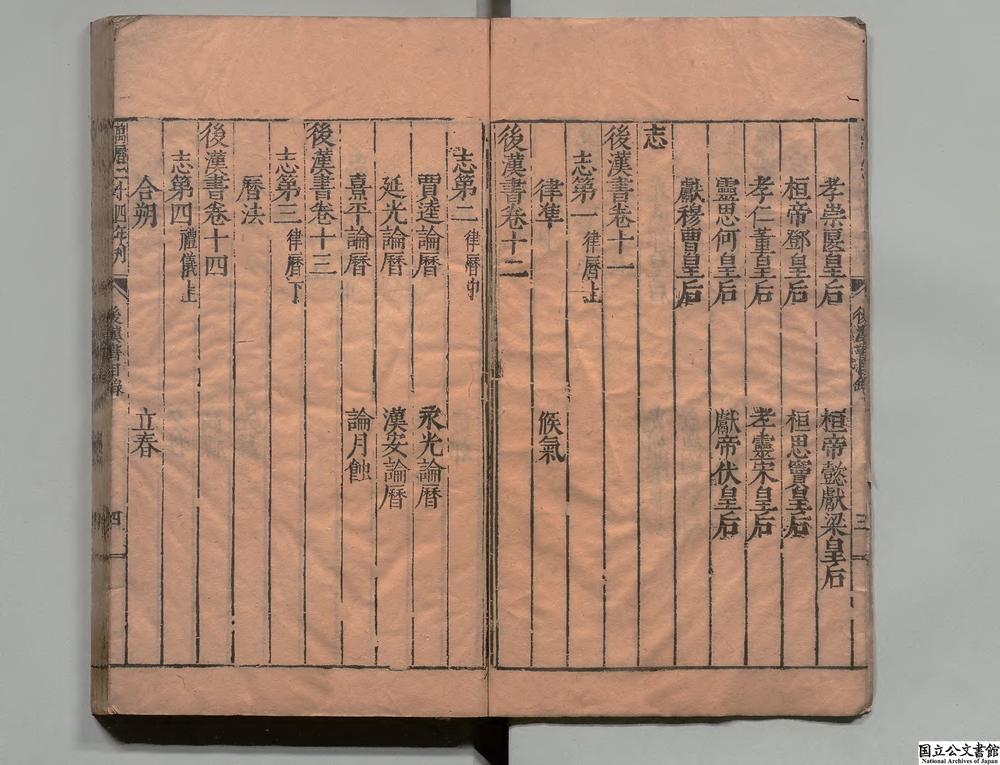 後漢書目錄
三
孝崇匽皇后　桓帝懿獻梁皇后
桓帝鄧皇后　桓思竇皇后
孝仁董皇后　孝靈宋皇后
靈思何皇后　獻帝伏皇后
獻穆曹皇后
志
後漢書卷十一
志第一 律曆上
律準　候氣
後漢書卷十二
志第二 律曆中
賈逵論曆　永光論曆
延光論曆　漢安論曆
熹平論曆　論月蝕
後漢書卷十三
志第三 律曆下
曆法
後漢書卷十四
志第四 禮儀上
合朔　立春
萬曆二十四年刊
後漢書目錄
四
国立公文書館
National Archives of Japan